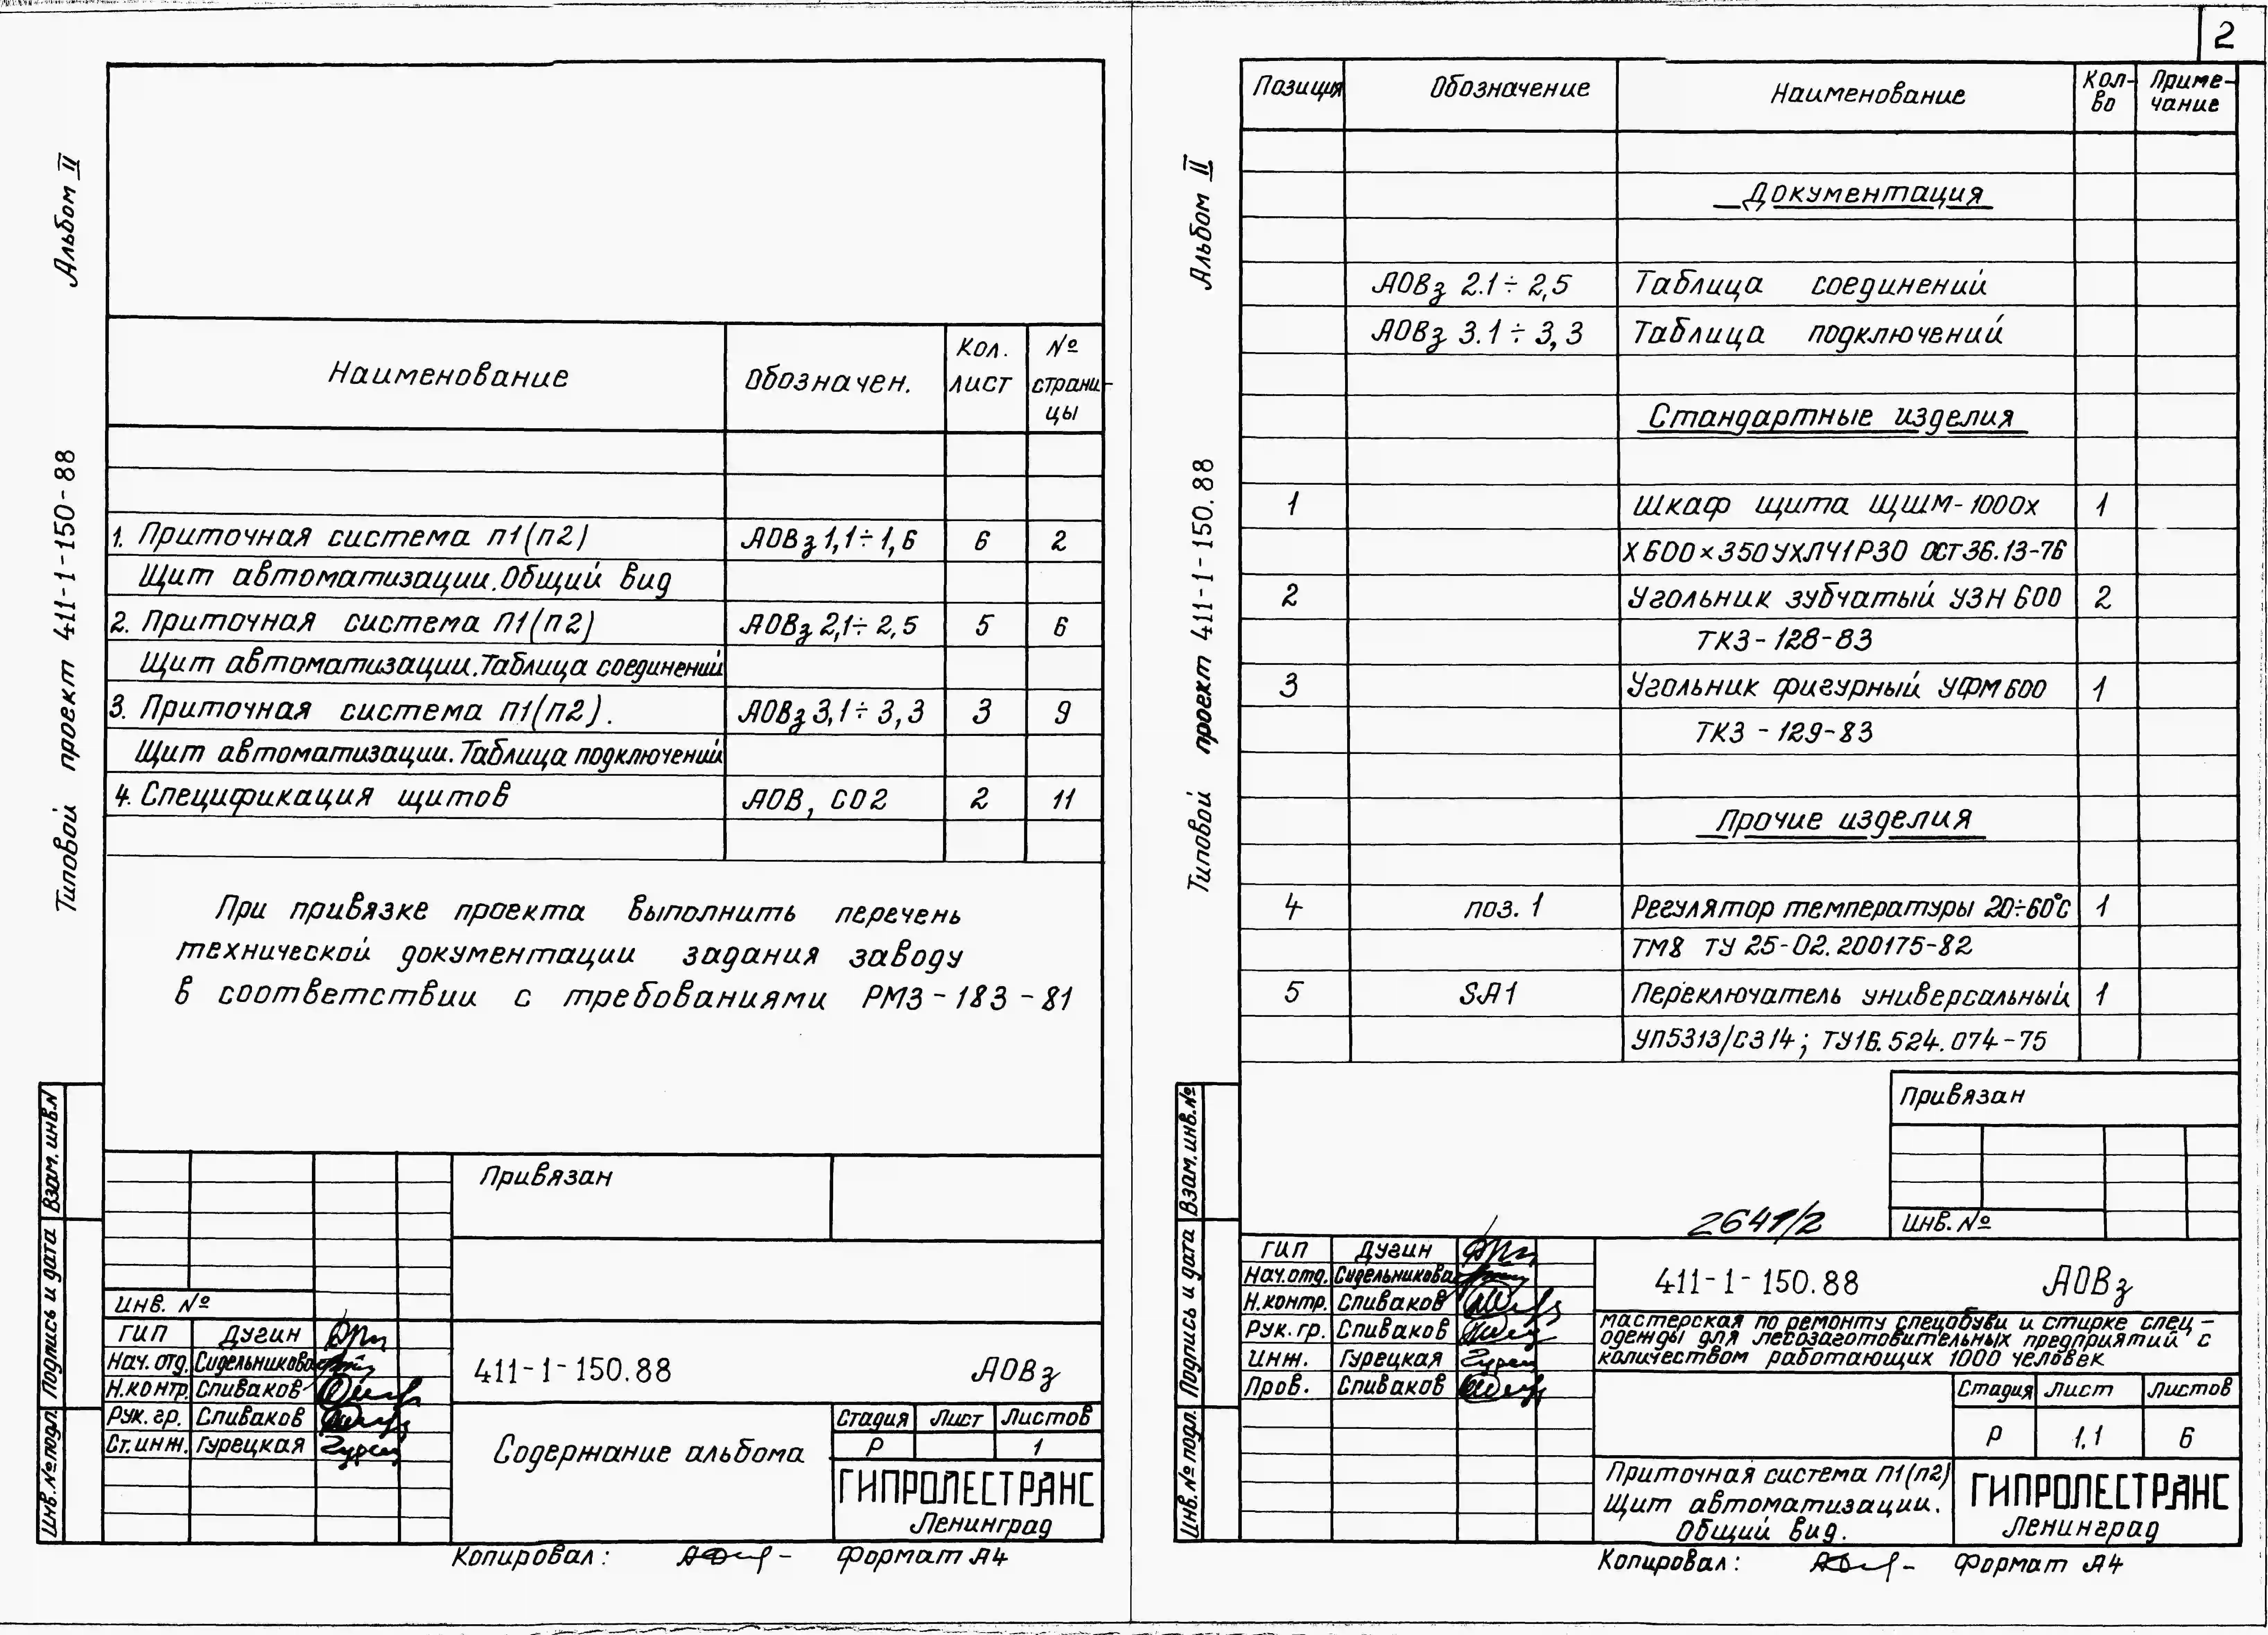 Альбом II
Типовой проект 411-1-150-88
Наименование Обозначен. Кол. лист № страни-цы
1. Приточная система п1(п2) АОВз 1,1÷1,6 6 2
Щит автоматизации. Общий вид
2. Приточная система П1(п2) АОВз 2,1÷2,5 5 6
Щит автоматизации. Таблица соединений
3. Приточная система п1(п2). АОВз 3,1÷3,3 3 9
Щит автоматизации. Таблица подключений
4. Спецификация щитов АОВ, СО2 2 11
При привязке проекта выполнить перечень
технической документации задания заводу
в соответствии с требованиями РМ3-183-81
Взам. инв.N
Подпись и дата
Инв. № подл.
Привязан
Инв. №
ГИП Дугин
Нач. отд. Сидельникова
Н.контр. Спиваков
Рук. гр. Спиваков
Ст. инж. Гурецкая
411-1-150.88 АОВз
Содержание альбома
Стадия Лист Листов
Р 1
ГИПРОЛЕСТРАНС
Ленинград
Копировал: Формат А4
2
Альбом II
Типовой проект 411-1-150.88
Позиция Обозначение Наименование Кол-во Приме-чание
Документация
АОВз 2.1÷2,5 Таблица соединений
АОВз 3.1÷3,3 Таблица подключений
Стандартные изделия
1 Шкаф щита ЩШМ-1000х 1
Х600×350УХЛЧ1Р30 ОСТ36.13-76
2 Угольник зубчатый УЗН600 2
ТК3-128-83
3 Угольник фигурный УФМ600 1
ТК3-129-83
Прочие изделия
4 поз. 1 Регулятор температуры 20÷60°С 1
ТМ8 ТУ 25-02.200175-82
5 SA1 Переключатель универсальный 1
УП5313/С314; ТУ16.524.074-75
Взам. инв.№
Подпись и дата
Инв. № подл.
Привязан
Инв. №
2647/2
ГИП Дугин
Нач. отд. Сидельникова
Н.контр. Спиваков
Рук. гр. Спиваков
Инж. Гурецкая
Пров. Спиваков
411-1-150.88 АОВз
Мастерская по ремонту спецобуви и стирке спец-
одежды для лесозаготовительных предприятий с
количеством работающих 1000 человек
Стадия Лист Листов
Р 1.1 6
Приточная система П1(п2)
Щит автоматизации.
Общий вид.
ГИПРОЛЕСТРАНС
Ленинград
Копировал: Формат А4